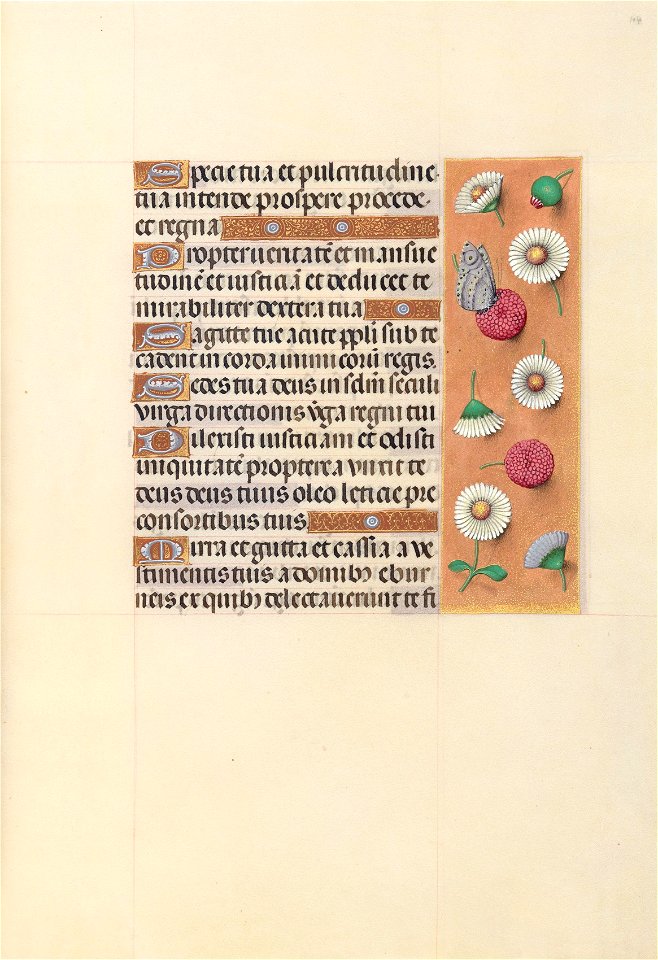 Specie tua et pulcritudine
tua intende prospere procede
et regna
Propter veritatē et mansue
tudinē et iusticiā et deducet te
mirabiliter dextera tua
Sagitte tue acute ppli sub te
cadent in corda inimicorū regis.
Sedes tua deus in sclm seculi
virga directionis v̄ga regni tui
Dilexisti iusticiam et odisti
iniquitatē propterea vnxit te
deus deus tuus oleo leticie pre
consortibus tuis
Mirra et gutta et cassia a ve
stimentis tuis a domibꝫ ebur
neis ex quibꝫ delectauerunt te fi